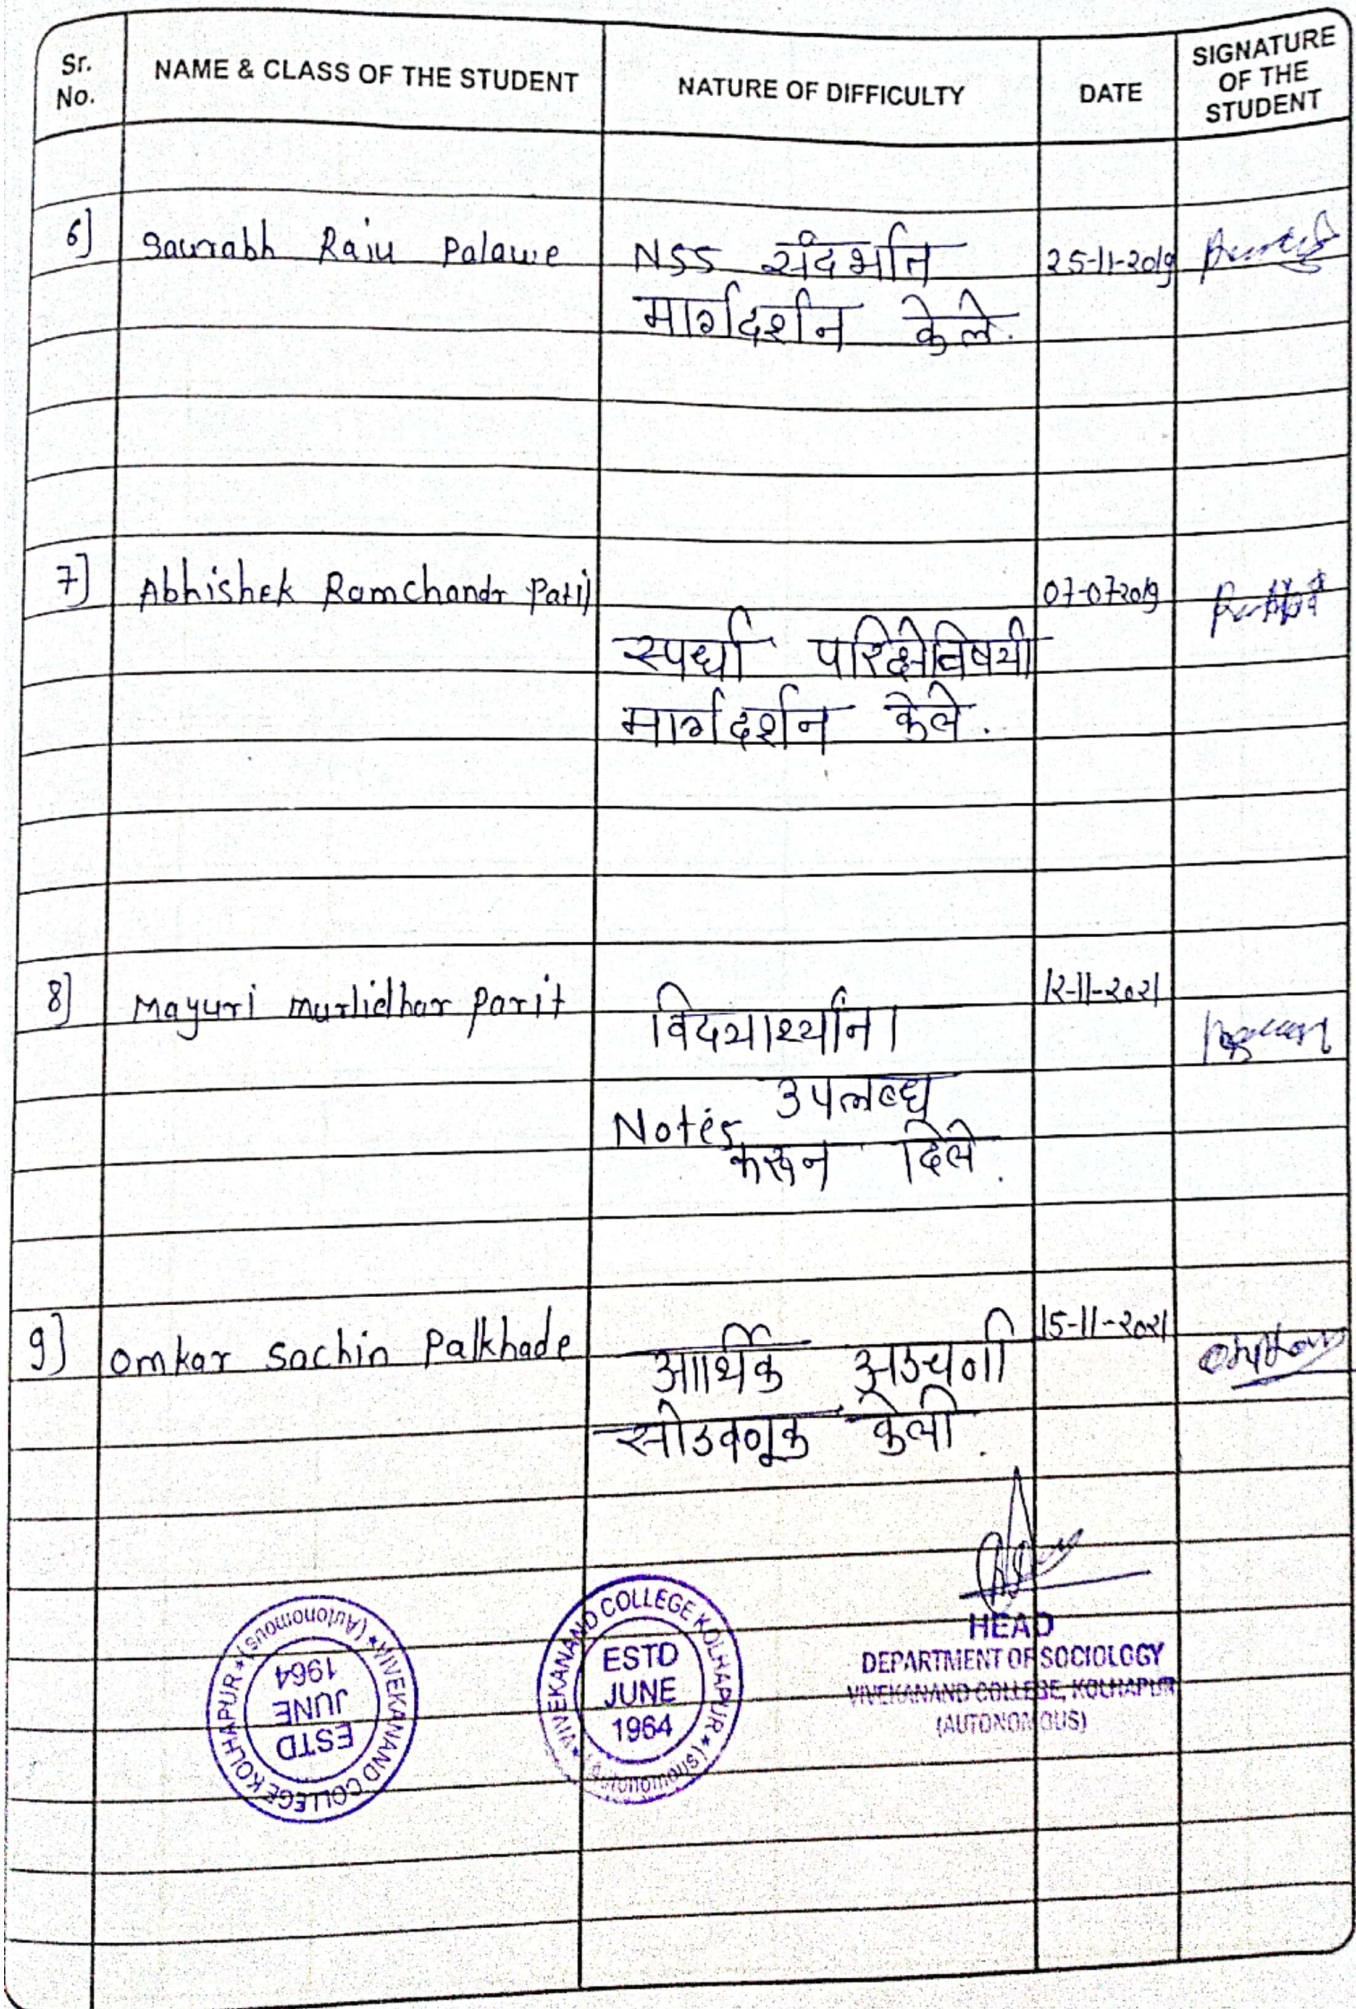 Sr. No.
NAME & CLASS OF THE STUDENT
NATURE OF DIFFICULTY
DATE
SIGNATURE OF THE STUDENT
6] Saurabh Raju Palawe NSS संदर्भात 25-11-2019
मार्गदर्शन केले.
7] Abhishek Ramchandr Patil 07-07-2019
स्पर्धा परिक्षेविषयी
मार्गदर्शन केले.
8] Mayuri Murlidhar Parit विदयार्थ्यांना 12-11-2021
Notes उपलब्ध
करून दिले.
9] Omkar Sachin Palkhade आर्थिक अडचणी 15-11-2021
सोडवणूक केली.
VIVEKANAND COLLEGE KOLHAPUR ★ (Autonomous) ★
ESTD
JUNE
1964
VIVEKANAND COLLEGE KOLHAPUR ★ (Autonomous) ★
ESTD
JUNE
1964
HEAD
DEPARTMENT OF SOCIOLOGY
VIVEKANAND COLLEGE, KOLHAPUR
(AUTONOMOUS)